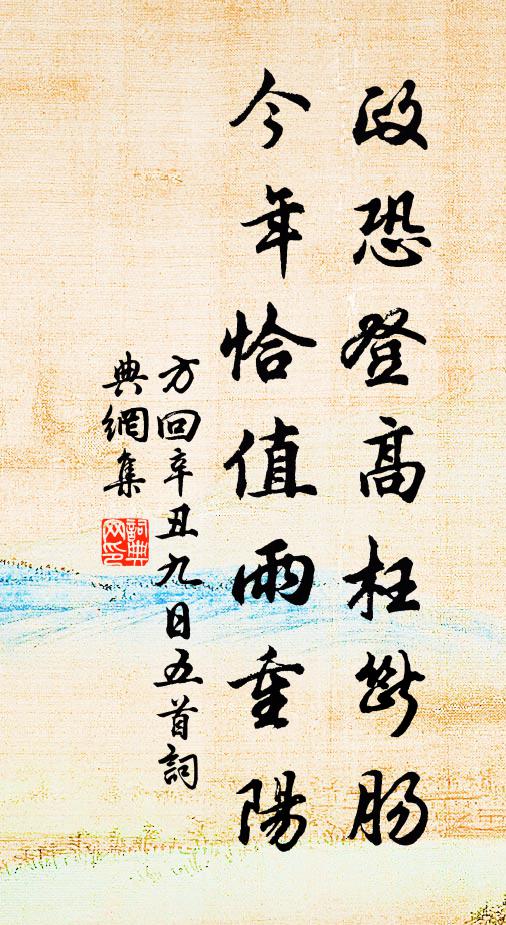 政恐登高枉斷肠
今年恰值雨重陽
方回辛丑九日五首詞
典網集
詞典
网印